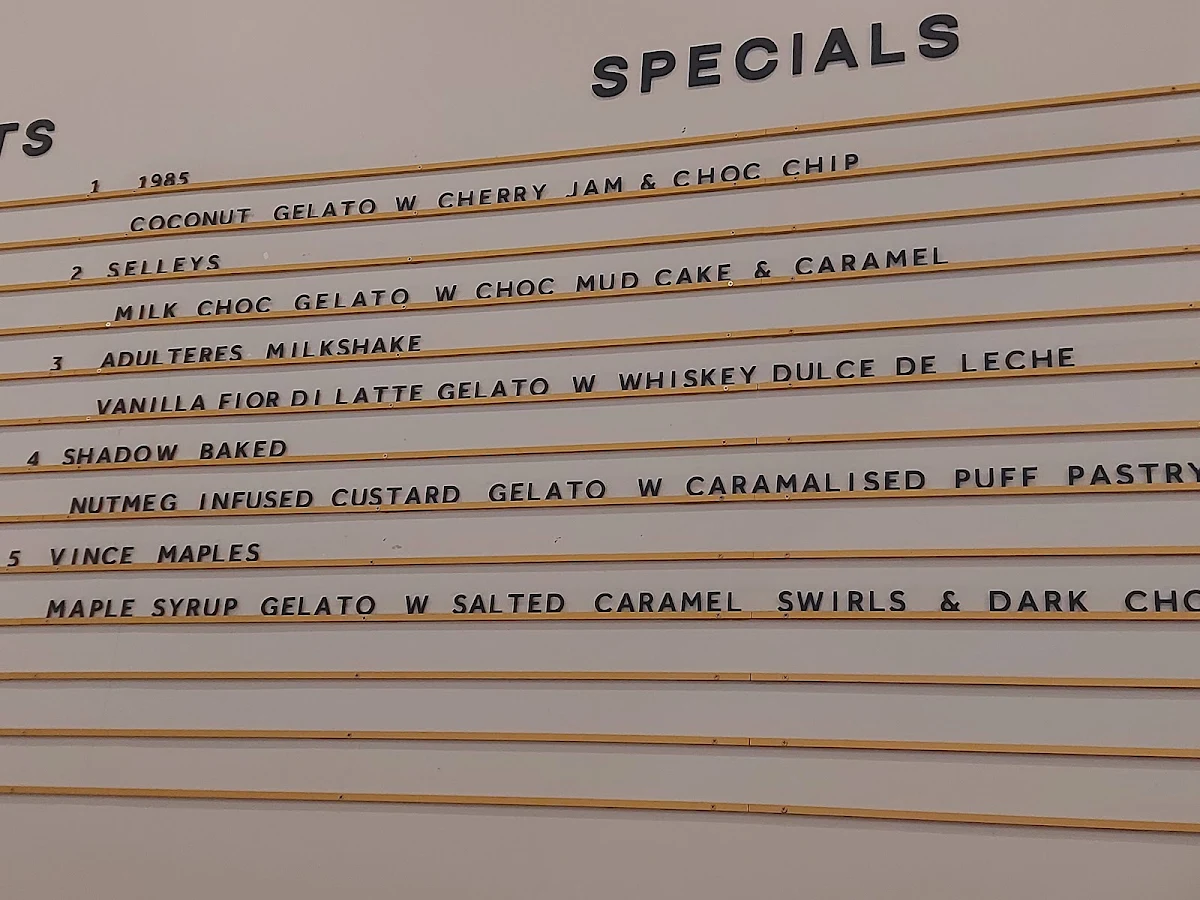 SPECIALS
TS
1 1985
COCONUT GELATO W CHERRY JAM & CHOC CHIP
2 SELLEYS
MILK CHOC GELATO W CHOC MUD CAKE & CARAMEL
3 ADULTERES MILKSHAKE
VANILLA FIOR DI LATTE GELATO W WHISKEY DULCE DE LECHE
4 SHADOW BAKED
NUTMEG INFUSED CUSTARD GELATO W CARAMALISED PUFF PASTRY
5 VINCE MAPLES
MAPLE SYRUP GELATO W SALTED CARAMEL SWIRLS & DARK CHO